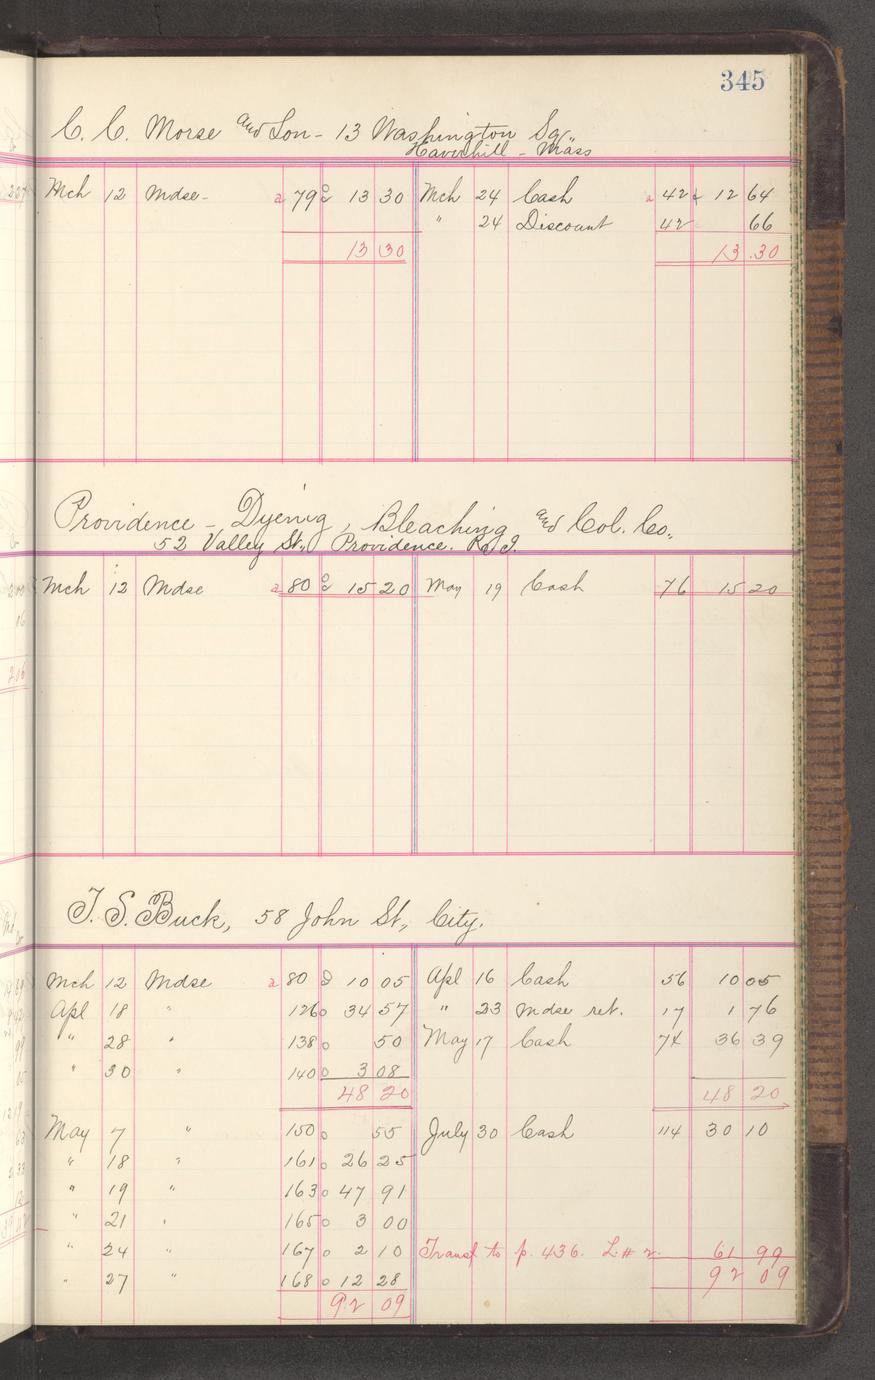 345
C. C. Morse and Son - 13 Washington Sq.,
Haverhill - Mass
Mch 12 Mdse - a 79 c 13 30 Mch 24 Cash a 42 c 12 64
" 24 Discount 42 66
13 30 13.30
Providence - Dyenig, Bleaching and Col. Co.,
52 Valley St., Providence. R. I.
Mch 12 Mdse a 80 c 15 20 May 19 Cash 76 15 20
T. S. Buck, 58 John St., City.
Mch 12 Mdse a 80 d 10 05 Apl 16 Cash 56 10 05
Apl 18 " 126 o 34 57 " 23 Mdse ret. 17 1 76
" 28 " 138 o 50 May 17 Cash 74 36 39
" 30 " 140 o 3 08
48 20 48 20
May 7 " 150 o 55 July 30 Cash 114 30 10
" 18 " 161 o 26 25
" 19 " 163 o 47 91
" 21 " 165 o 3 00
" 24 " 167 o 2 10 Transf to p. 436. L. # 2. 61 99
" 27 " 168 o 12 28 92 09
92 09